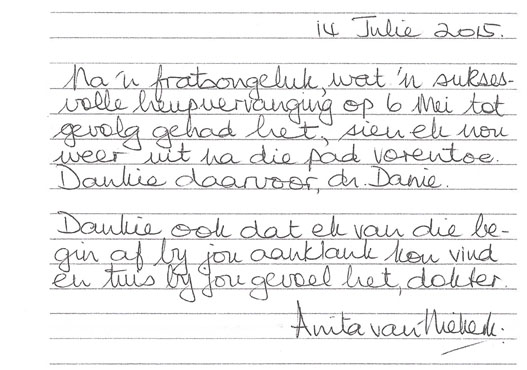 14 Julie 2015.
Na 'n fratsongeluk, wat 'n sukses-
volle heupvervanging op 6 Mei tot
gevolg gehad het, sien ek nou
weer uit na die pad vorentoe.
Dankie daarvoor, dr. Danie.
Dankie ook dat ek van die be-
gin af by jou aanklank kon vind
en tuis by jou gevoel het, dokter.
Anita van Niekerk.